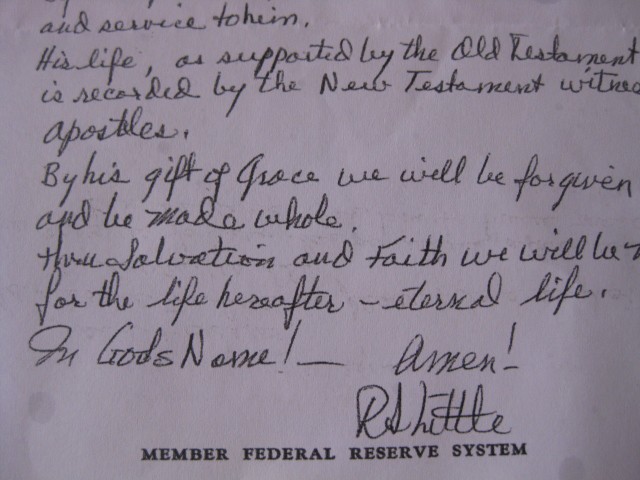 and service to him.
His life, as supported by the Old Testament
is recorded by the New Testament
apostles.
By his gift of Grace we will be forgiven
and be made whole.
thru Salvation and Faith we will be
for the life hereafter – eternal life.
In Gods Name! — Amen!
RSLittle
MEMBER FEDERAL RESERVE SYSTEM